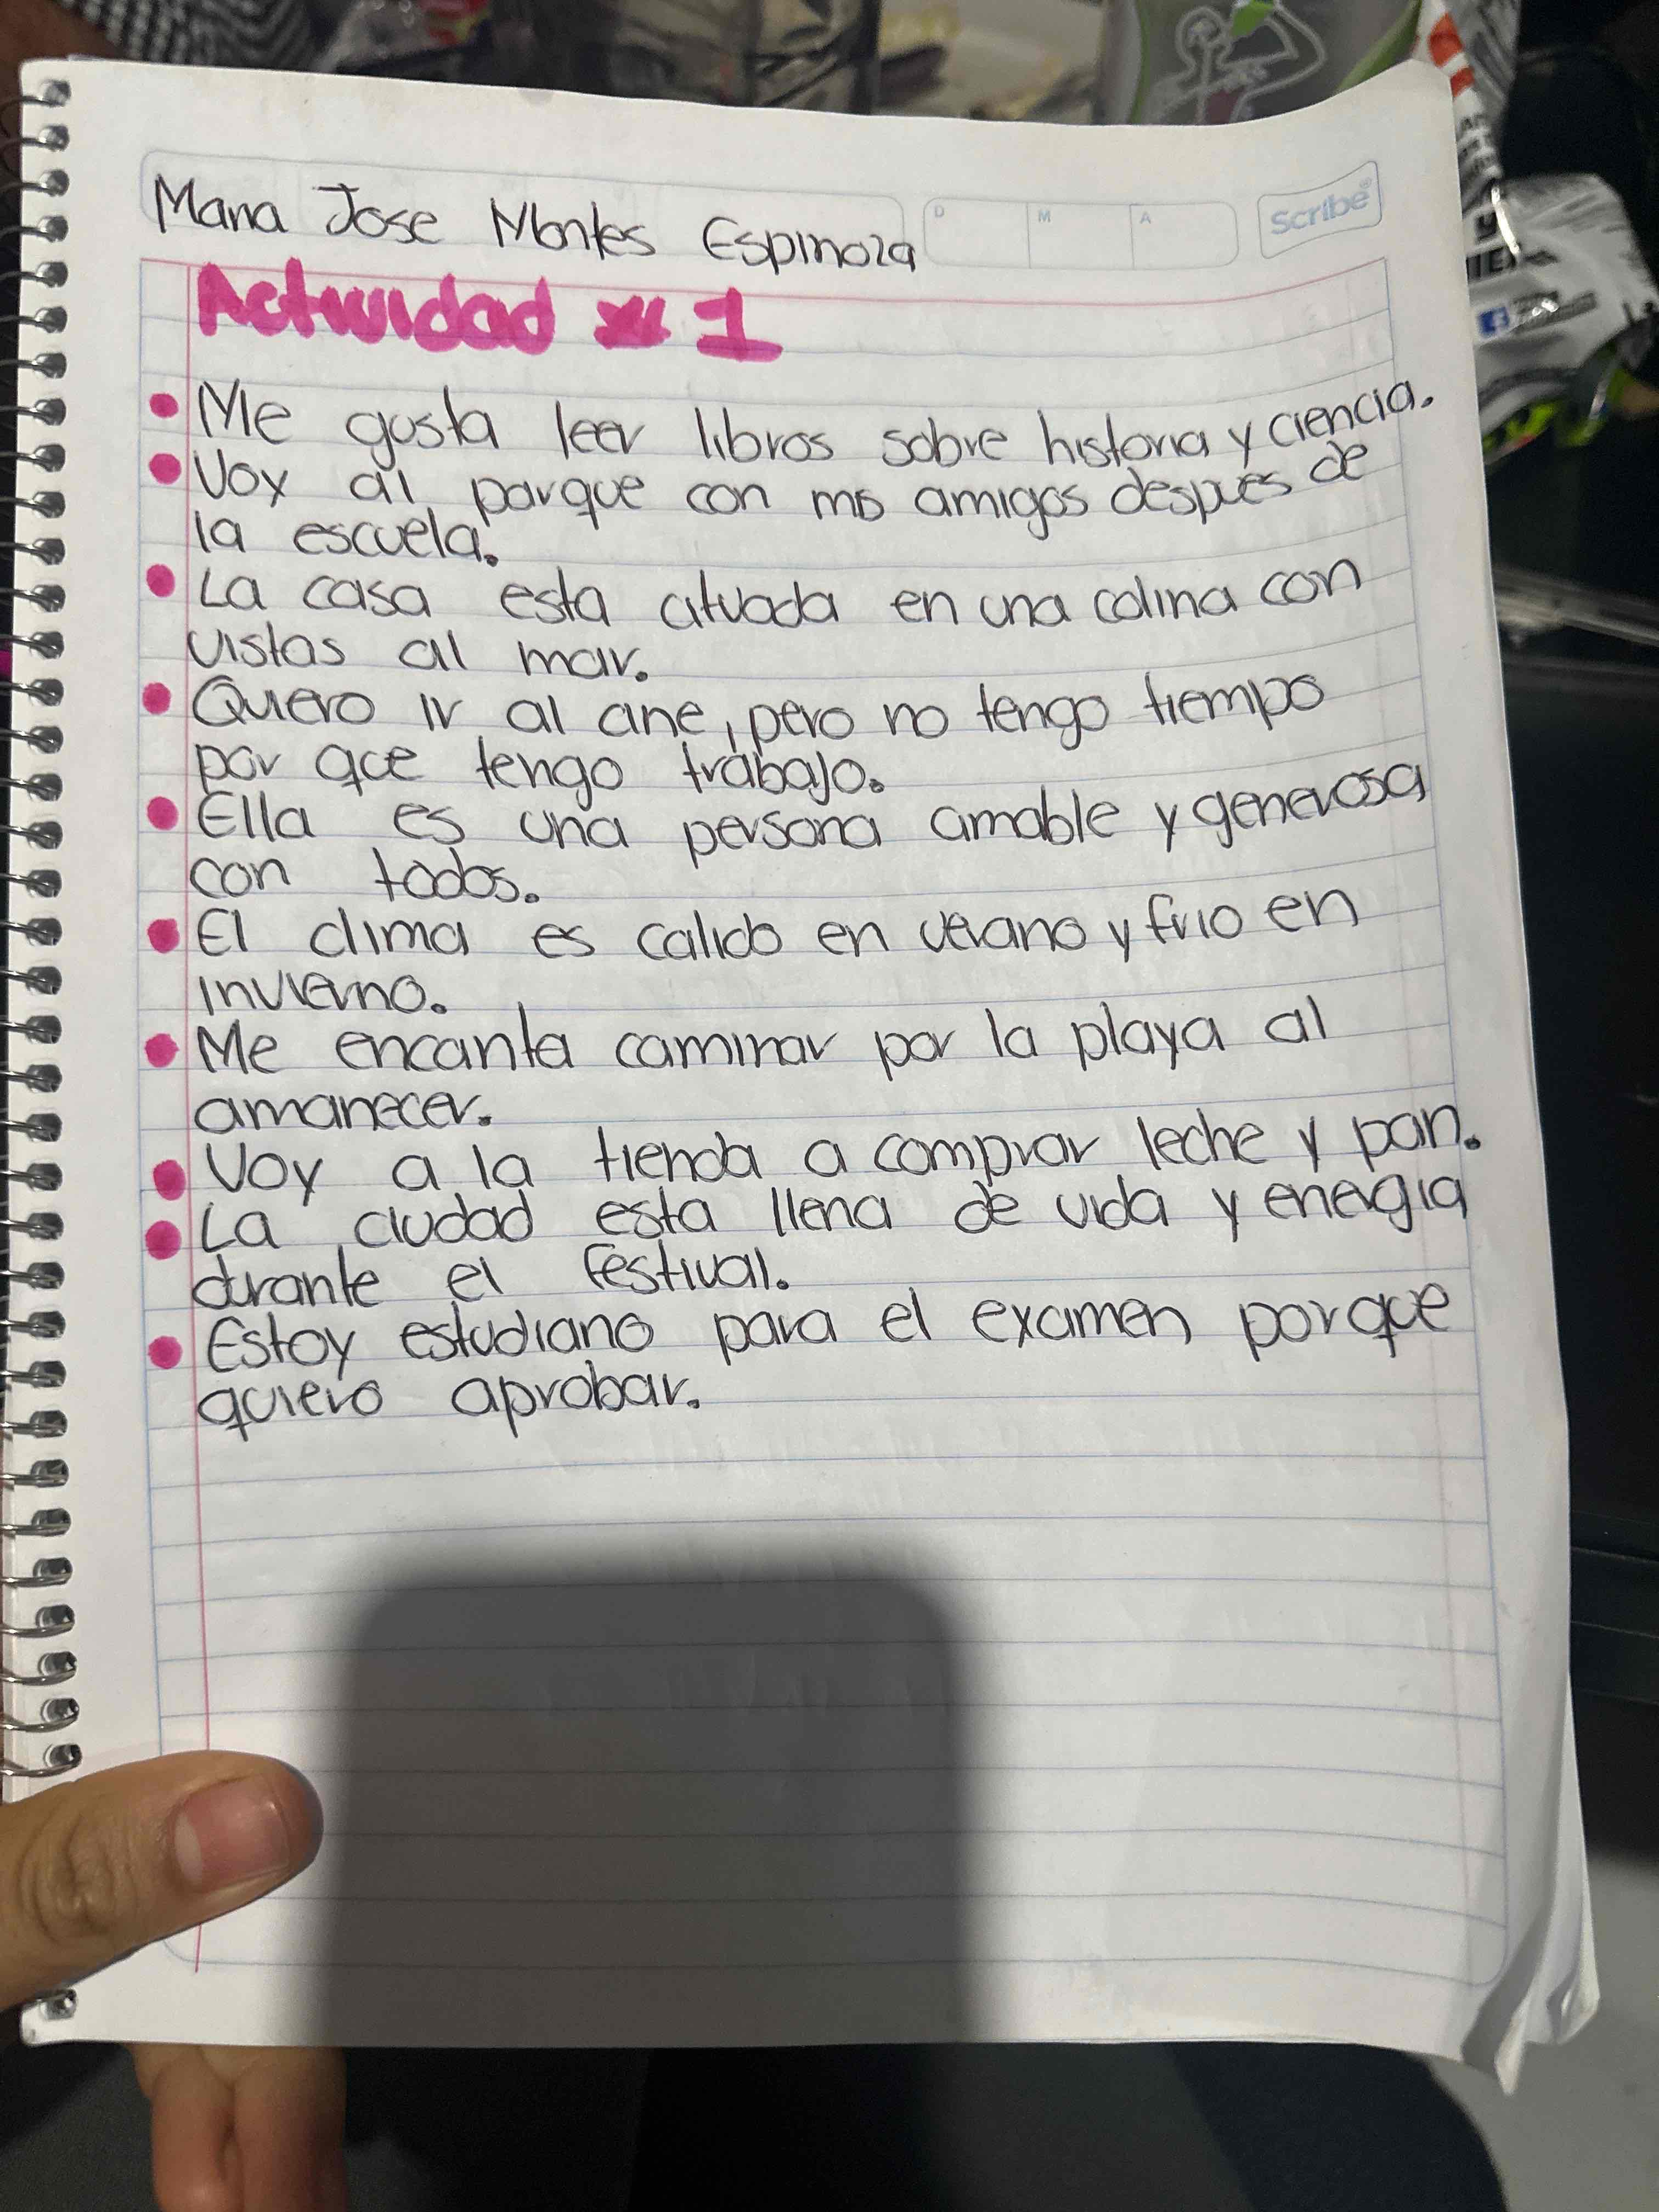 Maria Jose Montes Espinoza
D M A
Scribe
Actividad 1
• Me gusta leer libros sobre historia y ciencia.
• Voy al parque con mis amigos despues de
la escuela.
• La casa esta cituada en una colina con
vistas al mar.
• Quiero ir al cine, pero no tengo tiempo
por que tengo trabajo.
• Ella es una persona amable y generosa
con todos.
• El clima es calido en verano y frio en
invierno.
• Me encanta caminar por la playa al
amanecer.
• Voy a la tienda a comprar leche y pan.
• La ciudad esta llena de vida y energia
durante el festival.
• Estoy estudiano para el examen porque
quiero aprobar.